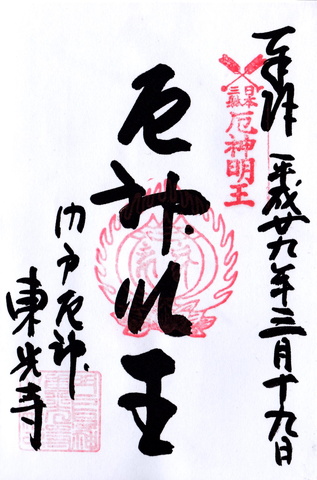 奉拝 平成廿九年三月十九日
日本三躰
厄神明王
厄神明王
門戸厄神
東光寺